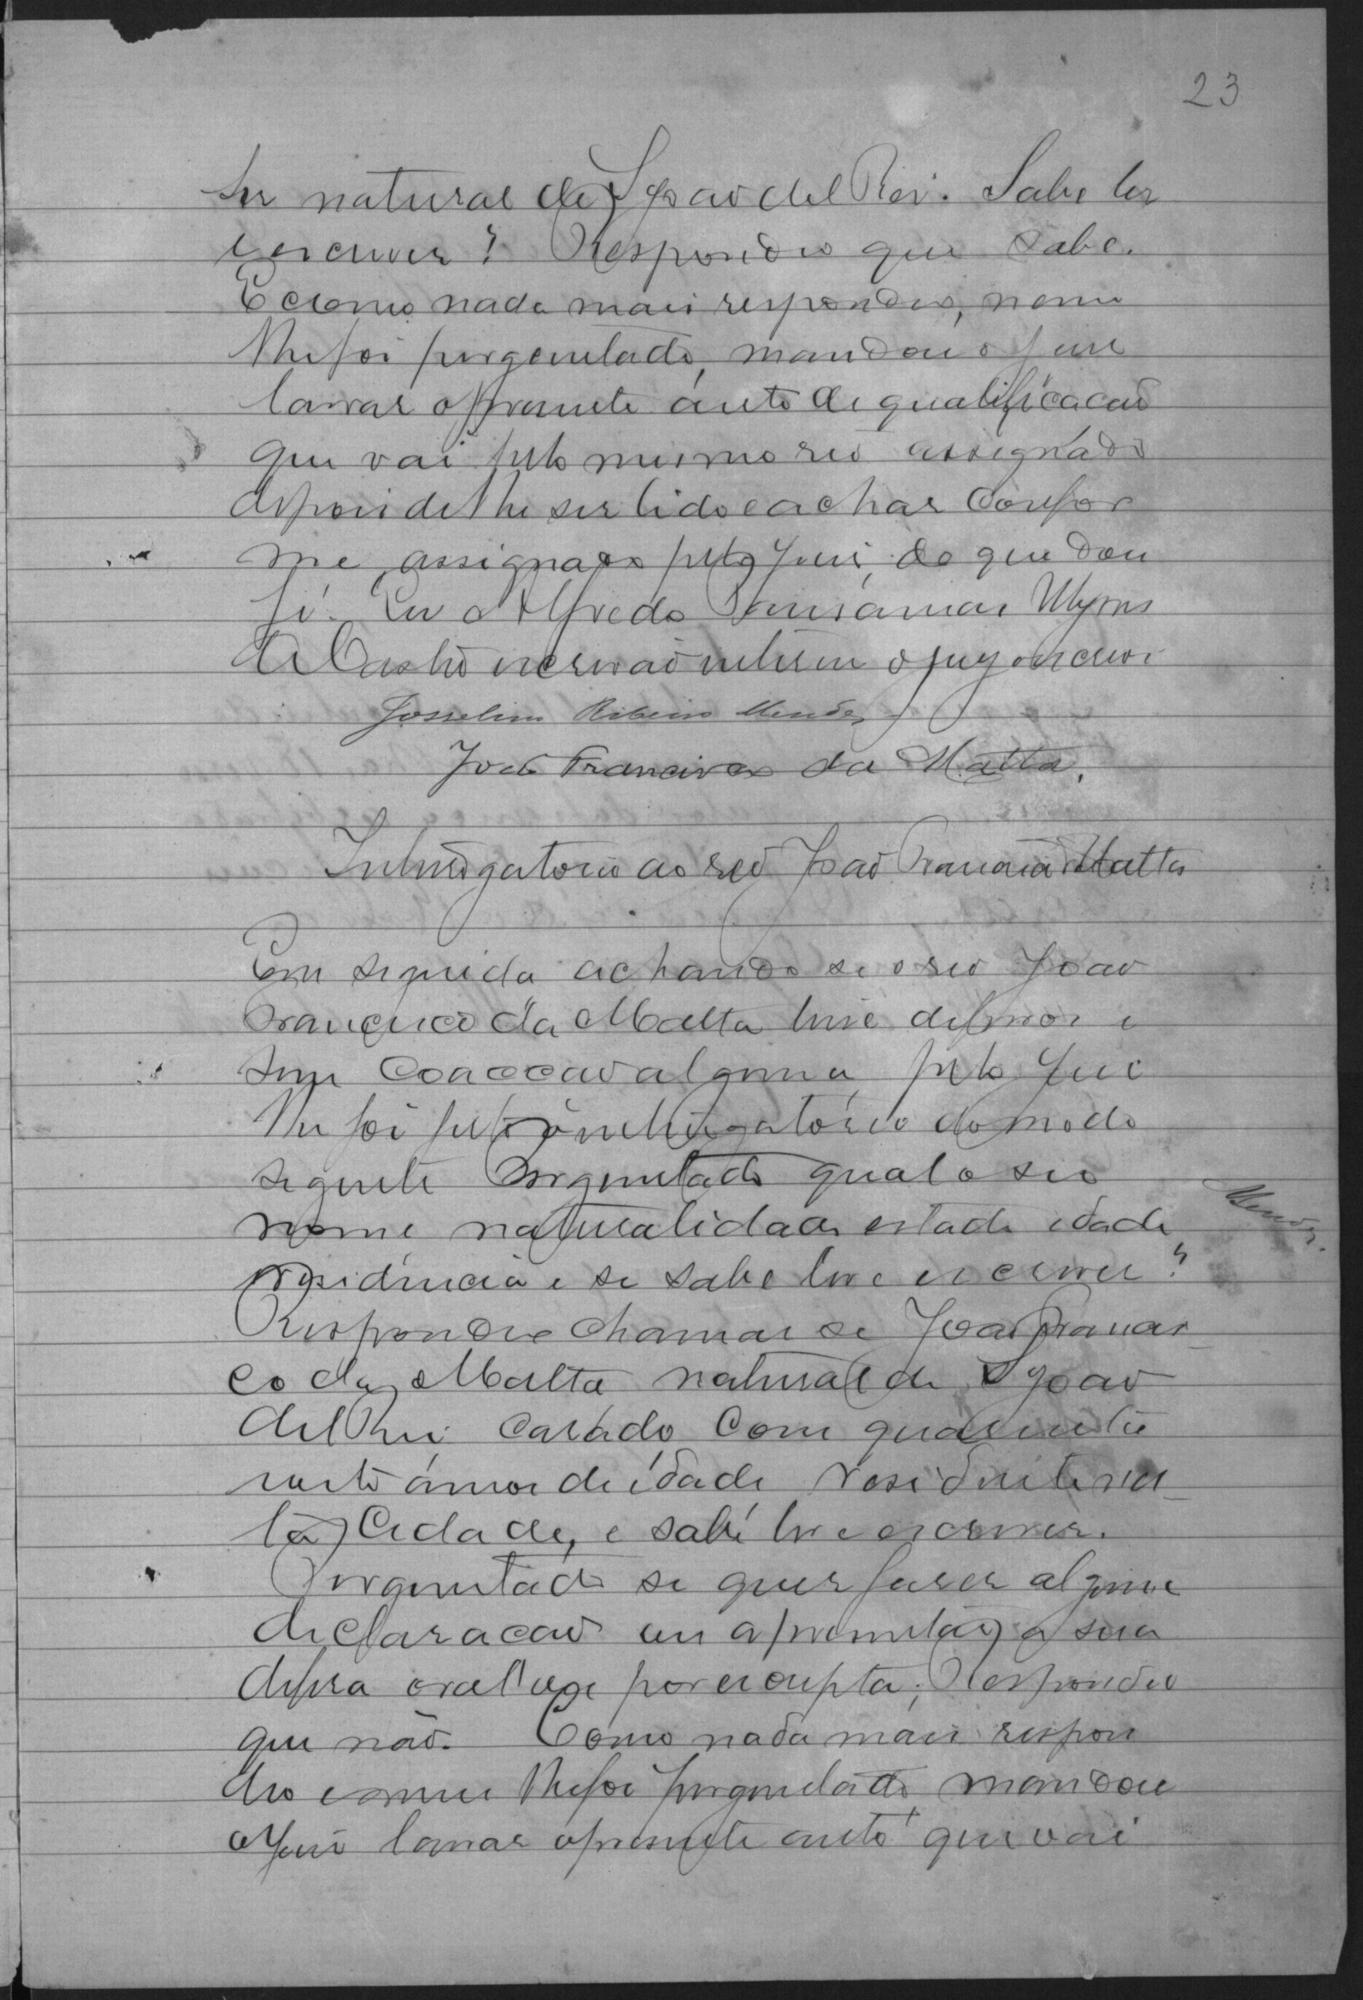 23
ser natural de S João del Rei. Sabe ler
e escrever? Respondeo que sabe.
E como nada mais respondeo, nem
lhe foi perguntado, mandou o Juis
lavrar o presente auto de qualificacaõ
que vai pelo mesmo reo assignado
depois de lhe ser lido e achar confor
me, assignado pelo Juis, do que dou
fé. Eu Alfredo
de Castro escrivaõ interino o fiz e escrevi
Josselino Ribeiro Mendes
João Francisco da Matta.
Interrogatorio ao reo Joaõ Francisco da Matta
Em seguida achando se o reo Joaõ
Francisco da Matta livre de ferros e
sem coaccaõ alguma, pelo Juis
lhe foi feito o interrogatório do modo
seguinte Perguntado qual o seo
nome naturalidade estado idade
residencia e se sabe ler e escrever?
Mendes.
Respondeo chamar se Joaõ Francis-
co da Matta natural de S Joaõ
del Rei casado com quarenta
annos de idade residente nes-
ta Cidade, e sabe ler e escrever.
Perguntado se quer faser alguma
declaracaõ ou apresentar a sua
defesa oral ou por escripta; Respondeo
que não. Como nada mais respon
deo e nem lhe foi perguntado mandou
o Juis lavrar o presente auto que vai